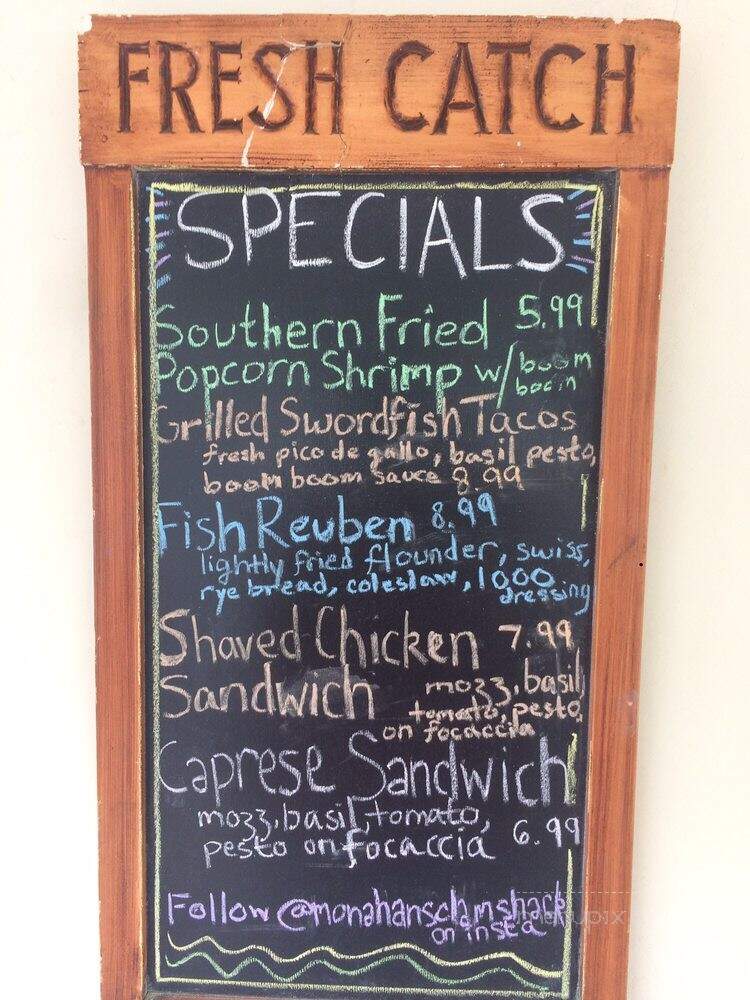 FRESH CATCH
SPECIALS
Southern Fried 5.99
Popcorn Shrimp w/ boom
boom
Grilled Swordfish Tacos
fresh pico de gallo, basil pesto,
boom boom sauce 8.99
Fish Reuben 8.99
lightly fried flounder, swiss,
rye bread, coleslaw, 1000
dressing
Shaved Chicken 7.99
Sandwich mozz, basil,
tomato, pesto,
on focaccia
Caprese Sandwich
mozz, basil, tomato,
pesto on focaccia 6.99
Follow @monahansclamshack
on insta
menupix